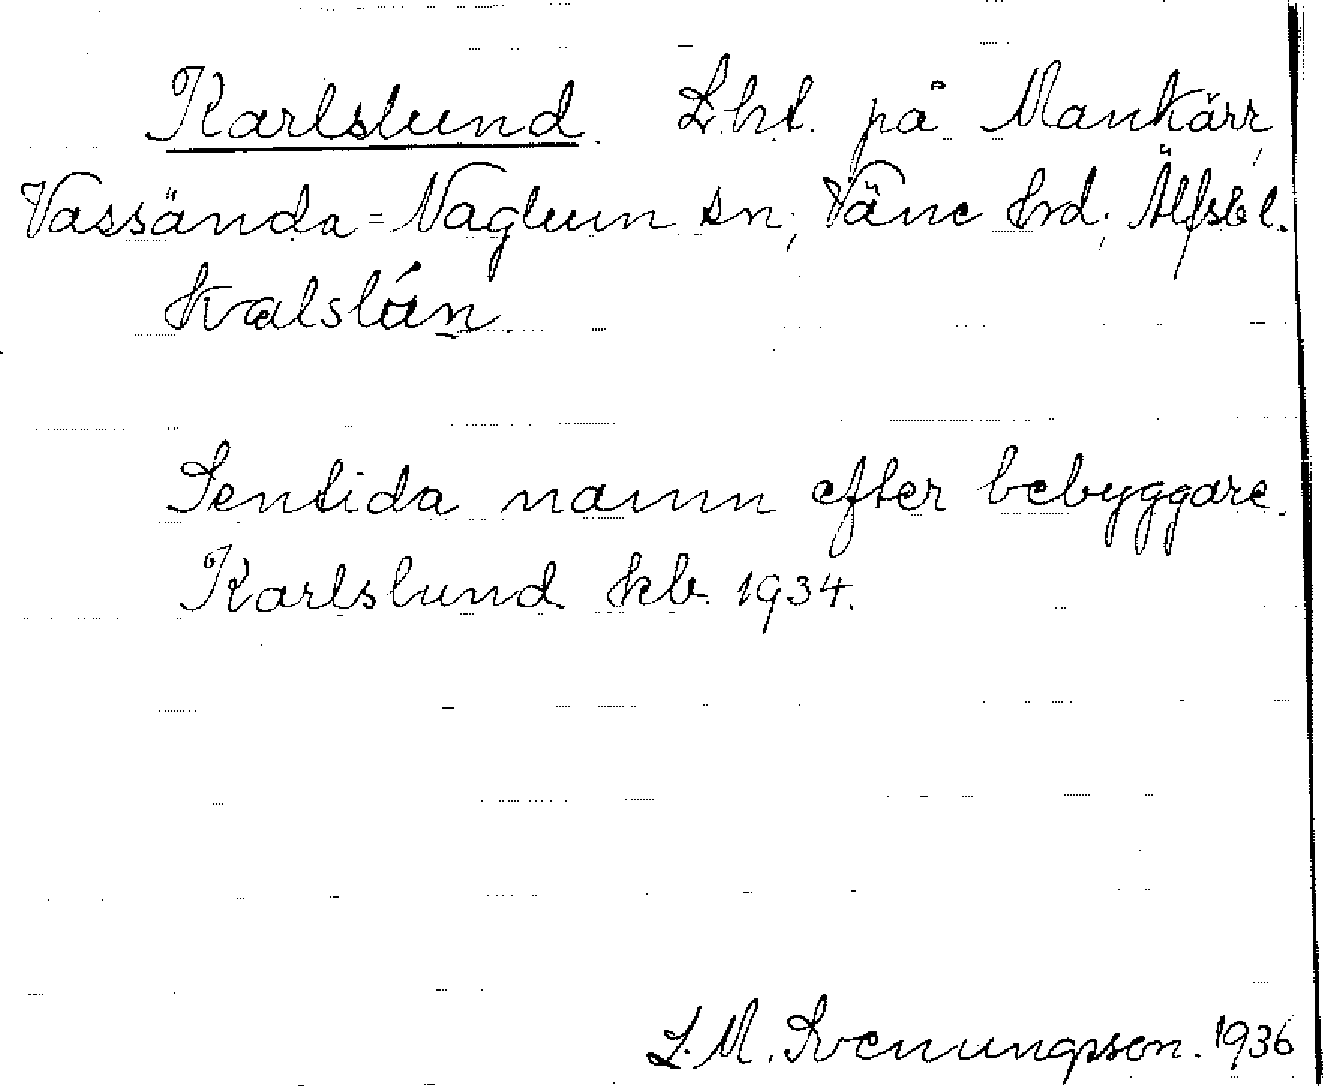 Karlslund. Lht. på Mankärr,
Vassända-Naglum sn, Väne hrd, Älfsb l.
kalslún
Sentida namn efter bebyggare.
Karlslund kb. 1934.
L. M. Svenungsson. 1936